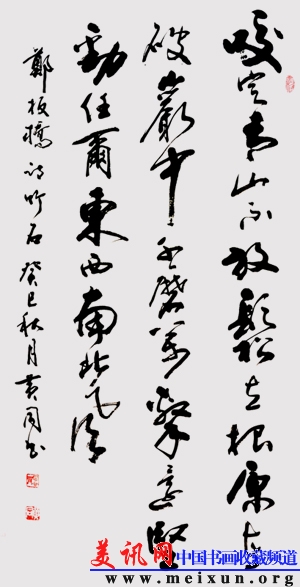 咬定青山不放鬆立根原在
破巖中千磨萬擊還堅
勁任爾東西南北風
鄭板橋詩竹石癸巳秋月黃书
美讯网
中国书画收藏频道
www.meixun.org